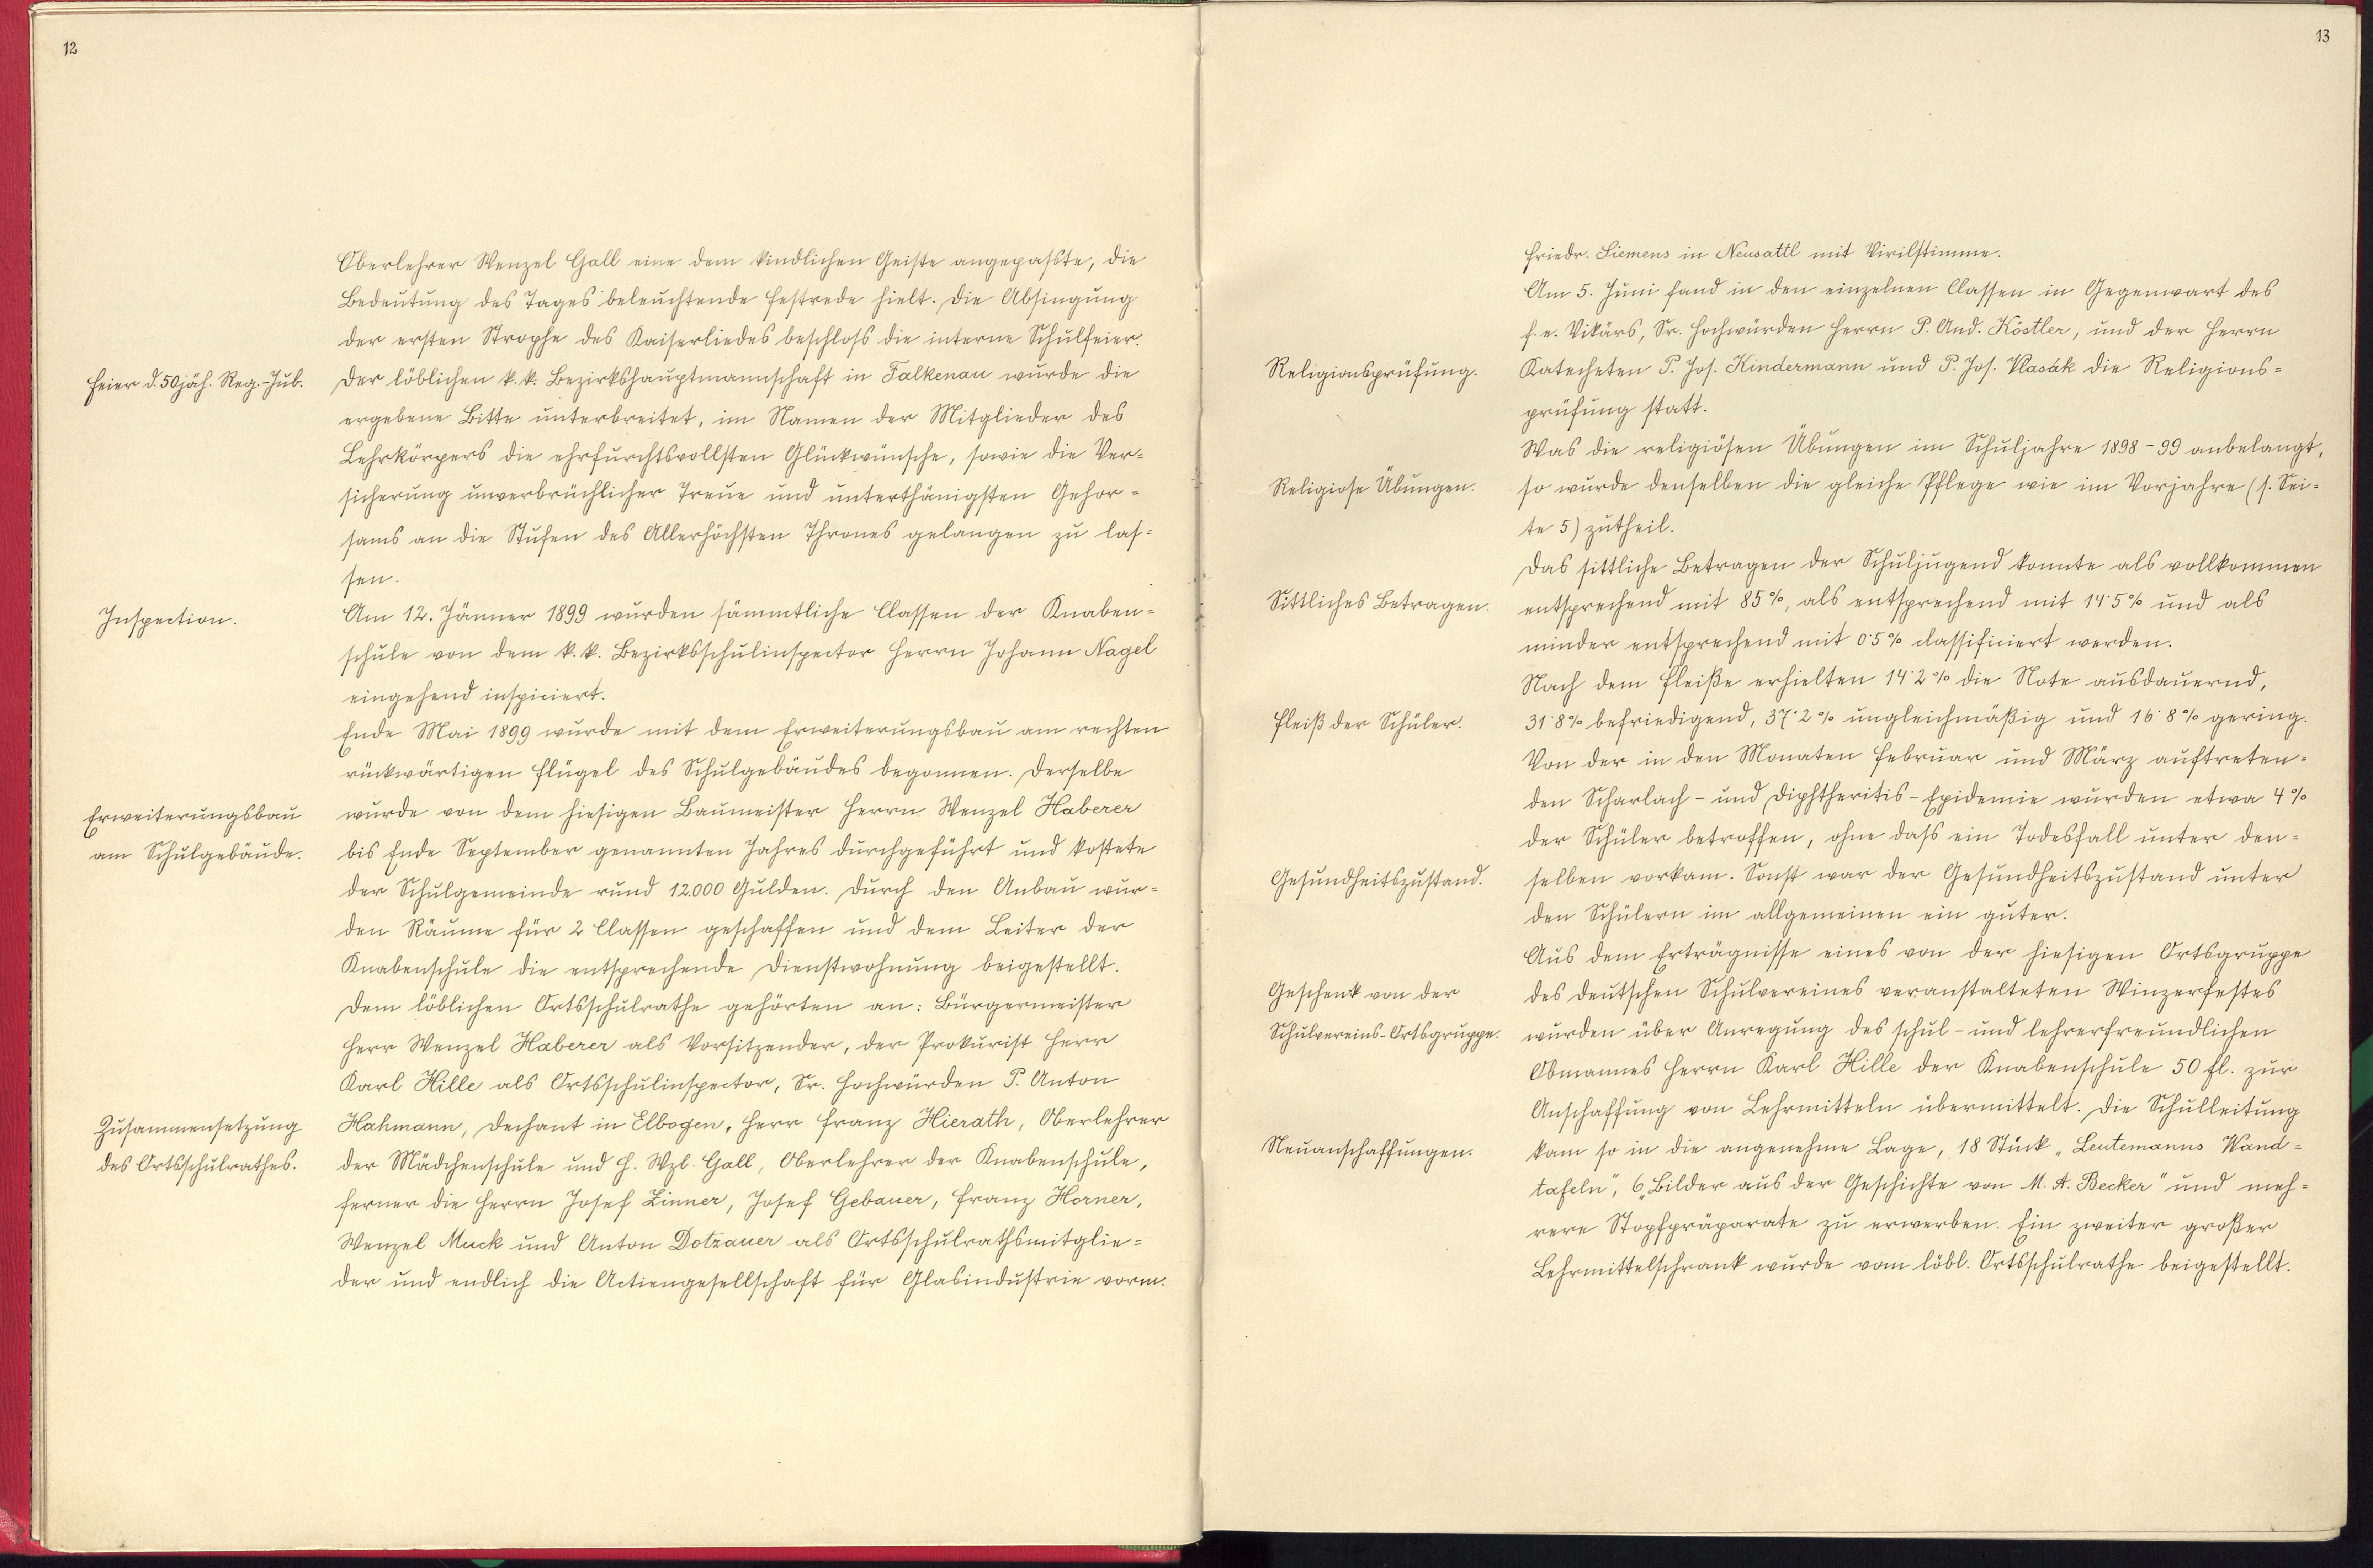 12
Oberlehrer Wenzel Gall eine dem kindlichen Geiste angepaßte, die
Bedeutung des Tages beleuchtende Festrede hielt. Die Absingung
der ersten Strophe des Kaiserliedes beschloß die interne Schulfeier.
Feier d. 50jäh. Reg.-Jub.
Der löblichen k. k. Bezirkshauptmannschaft in Falkenau wurde die
ergebene Bitte unterbreitet, im Namen der Mitglieder des
Lehrkörpers die ehrfurchtsvollsten Glückwünsche, sowie die Ver-
sicherung unverbrüchlicher Treue und unterthänigsten Gehor-
sams an die Stufen des Allerhöchsten Thrones gelangen zu las-
sen.
Inspection.
Am 12. Jänner 1899 wurden sämmtliche Classen der Knaben-
schule von dem k. k. Bezirksschulinspector Herrn Johann Nagel
eingehend inspiciert.
Ende Mai 1899 wurde mit dem Erweiterungsbau am rechten
rückwärtigen Flügel des Schulgebäudes begonnen. Derselbe
Erweiterungsbau
am Schulgebäude.
wurde von dem hiesigen Baumeister Herrn Wenzel Haberer
bis Ende September genannten Jahres durchgeführt und kostete
der Schulgemeinde rund 12.000 Gulden. Durch den Anbau wur-
den Räume für 2 Classen geschaffen und dem Leiter der
Knabenschule die entsprechende Dienstwohnung beigestellt.
Dem löblichen Ortsschulrathe gehörten an: Bürgermeister
Herr Wenzel Haberer als Vorsitzender, der Prokurist Herr
Karl Hille als Ortsschulinspector, Sr. Hochwürden P. Anton
Zusammensetzung
des Ortsschulrathes.
Hahmann, Dechant in Elbogen, Herr Franz Hierath, Oberlehrer
der Mädchenschule und H. Wzl. Gall, Oberlehrer der Knabenschule,
ferner die Herrn Josef Zinner, Josef Gebauer, Franz Horner,
Wenzel Muck und Anton Dotzauer als Ortsschulrathsmitglie-
der und endlich die Actiengesellschaft für Glasindustrie vorm.
13
Friedr. Siemens in Neusattl mit Virilstimme.
Am 5. Juni fand in den einzelnen Classen in Gegenwart des
f. e. Vikärs, Sr. Hochwürden Herrn P. And. Köstler, und der Herrn
Religionsprüfung.
Katecheten P. Jos. Kindermann und P. Jos. Vlasák die Religions-
prüfung statt.
Was die religiösen Übungen im Schuljahre 1898-99 anbelangt,
Religiose Übungen.
so wurde denselben die gleiche Pflege wie im Vorjahre (s. Sei-
te 5) zutheil.
Das sittliche Betragen der Schuljugend konnte als vollkommen
Sittliches Betragen.
entsprechend mit 85%, als entsprechend mit 14·5% und als
minder entsprechend mit 0·5% classificiert werden.
Nach dem Fleiße erhielten 14·2% die Note ausdauernd,
Fleiß der Schüler.
31·8% befriedigend, 37·2% ungleichmäßig und 16·8% gering.
Von der in den Monaten Februar und März auftreten-
den Scharlach- und Diphtheritis-Epidemie wurden etwa 4%
der Schüler betroffen, ohne daß ein Todesfall unter den-
Gesundheitszustand.
selben vorkam. Sonst war der Gesundheitszustand unter
den Schülern im allgemeinen ein guter.
Aus dem Erträgnisse eines von der hiesigen Ortsgruppe
Geschenk von der
Schulvereins-Ortsgruppe.
des deutschen Schulvereines veranstalteten Winzerfestes
wurden über Anregung des schul- und lehrerfreundlichen
Obmannes Herrn Karl Hille der Knabenschule 50 fl. zur
Anschaffung von Lehrmitteln übermittelt. Die Schulleitung
Neuanschaffungen.
kam so in die angenehme Lage, 18 Stück „Leutemanns Wand-
tafeln", 6 „Bilder aus der Geschichte von M. A. Becker" und meh-
rere Stopfpräparate zu erwerben. Ein zweiter großer
Lehrmittelschrank wurde vom löbl. Ortsschulrathe beigestellt.